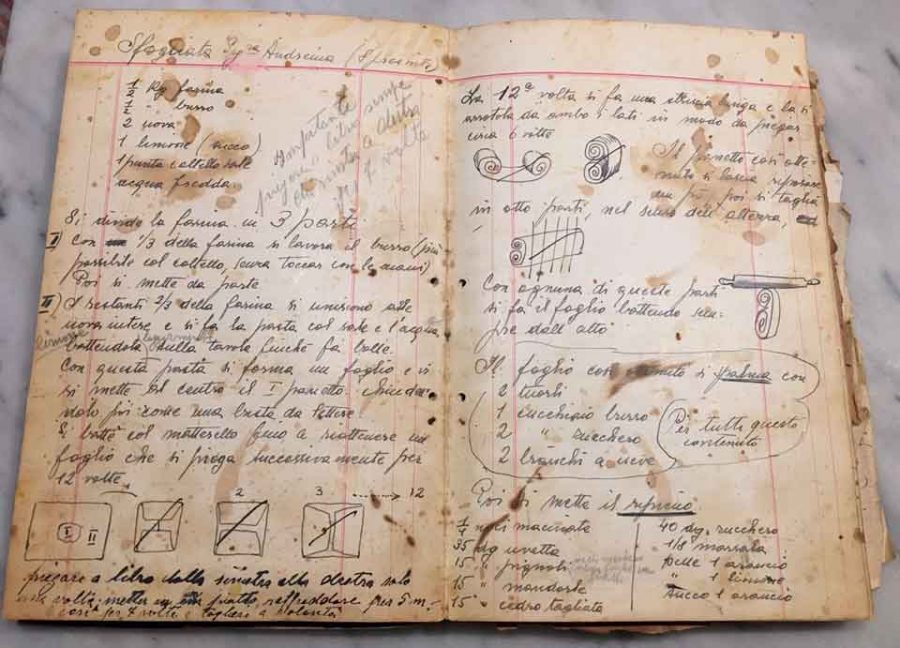 Sfogliata Sig.ra Andreina (Spezinte)
1/2 Kg farina
1/2 " burro
2 uova
1 limone (succo)
1 punta coltello sale
acqua fredda
Importante
piegare a libro sempre
da sinistra a destra
per 7 volte
Si divide la farina in 3 parti.
I) Con 1/3 della farina si lavora il burro (più
possibile col coltello, senza toccar con le mani)
Poi si mette da parte
II) I restanti 2/3 della farina si uniscono alle
uova intere e si fa la pasta col sale e l'acqua
limone
battendola sulla tavola finché fa bolle.
Con questa pasta si forma un foglio e vi
si mette al centro il I panetto chiuden
dolo poi come una busta da lettere.
Si batte col matterello fino a riottenere un
foglio che si piega successivamente per
12 volte.
I II 1 2 3 12
piegare a libro dalla sinistra alla destra solo
una volta, metter in un piatto raffreddare per 5 m.
così per 7 volte e tagliere a volontà
La 12a volta si fa una striscia lunga e la si
arrotola da ambo i lati in modo da piegar
circa 6 volte
Il panetto così otte-
nuto si lascia riposare
un pò, poi si taglia
in otto parti, nel senso dell'altezza,
Con ognuna di queste parti
si fa il foglio battendo sem-
pre dall'alto
Il foglio così ottenuto si spalma con
2 tuorli
1 cucchiaio burro
2 " zucchero
2 bianchi a neve
Per tutto questo
contenuto
Poi si mette il ripieno
1/4 noci macinate
35 dg uvetta
15 " pignoli
15 " mandorle
15 " cedro tagliato
40 dg. zucchero
1/8 marsala
Pelle 1 arancio
" 1 limone
Succo 1 arancio